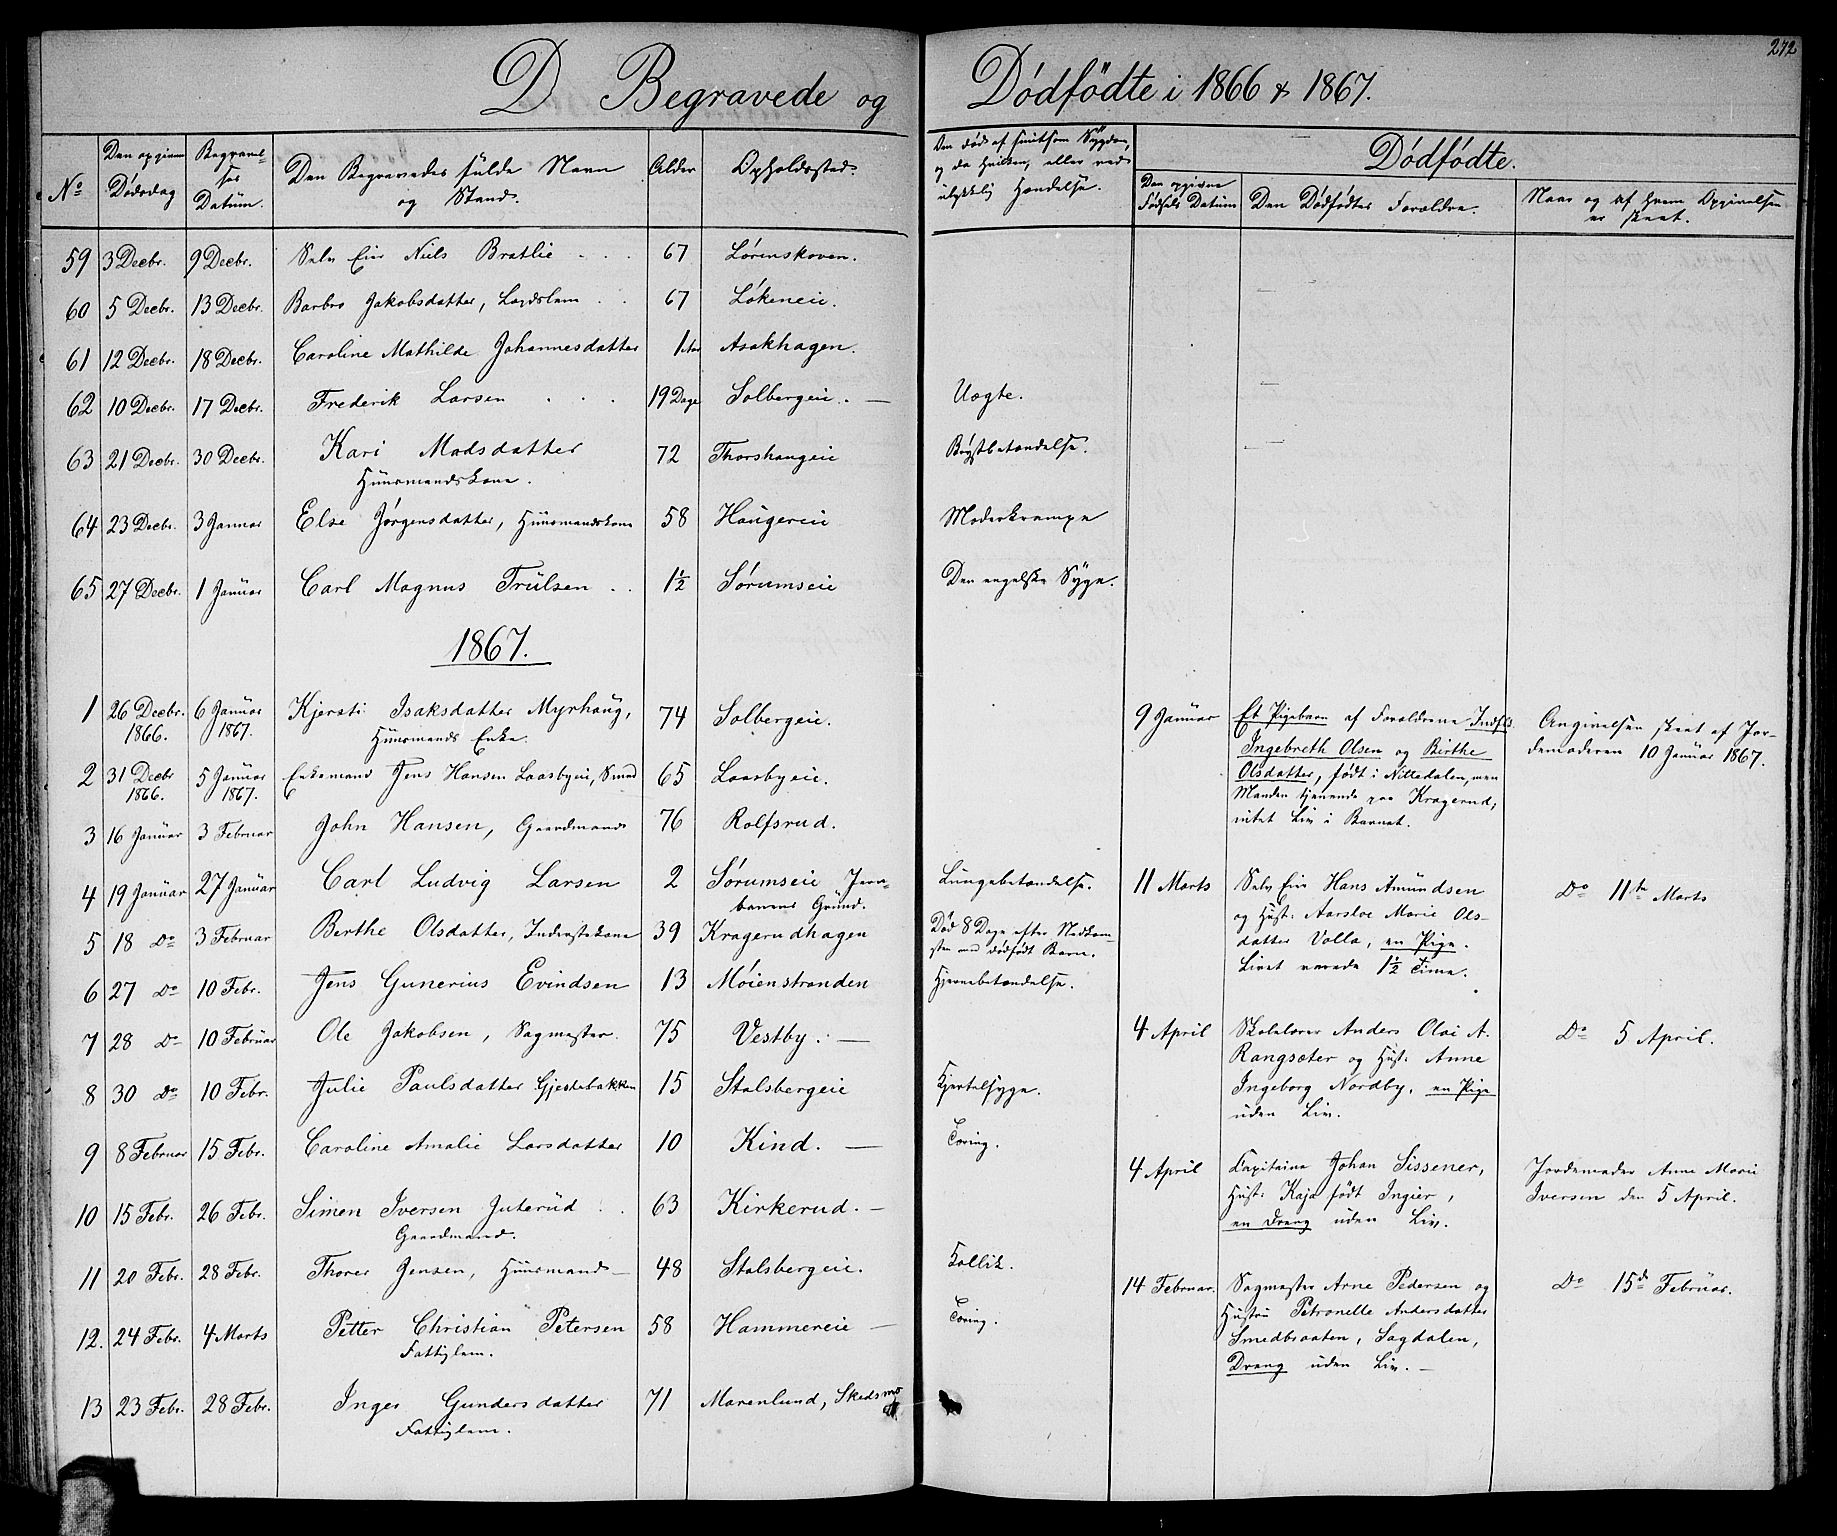 272
D. Begravede og Dödfödte i 1866 & 1867.
No
Den opgivne Dødsdag
Begravelses Datum.
Den Begravedes fulde Navn og Stand.
Alder
Opholdssted.
Den død af smitsom Sygdom, og da hvilken, eller ved ulykkelig Hændelse.
Dødfødte.
Den opgivne Fødsels Datum
Den Dødfødtes Forældre.
Naar og af hvem Opgivelsen er skeet.
59 3 Decbr. 9 Decbr. Selv Eier Niels Bratlie 67 Lørenskoven.
60 5 Decbr. 13 Decbr. Barbro Jakobsdatter, Lægdslem 67 Løkeneie.
61 12 Decbr. 18 Decbr. Caroline Mathilde Johannesdatter 1 Aar Asakhagen.
62 10 Decbr. 17 Decbr. Frederik Larsen 19 Dage Solbergeie. Uægte.
63 21 Decbr. 30 Decbr. Kari Madsdatter 72 Thorshaugeie Brystbetændelse.
Huusmandskone.
64 23 Decbr. 3 Januar Else Jørgensdatter, Huusmandskone 58 Haugereie Moderkrampe
65 27 Decbr. 1 Januar Carl Magnus Trulsen 1½ Sørumseie Den engelske Syge.
1867.
1 26 Decbr. 1866. 6 Januar 1867. Kjersti Isaksdatter Myrhaug, 74 Solbergeie.
Huusmands Enke.
2 31 Decbr 1866. 5 Januar 1867. Enkemand Jens Hansen Laasbyeie, Smed 65 Laasbyeie.
3 16 Januar 3 Februar John Hansen, Gaardmand 76 Rolfsrud.
4 19 Januar 27 Januar Carl Ludvig Larsen 2 Sørumseie Jern-
banens Grund. Lungebetændelse.
5 18 Do 3 Februar Berthe Olsdatter, Inderstekone 39 Kragerudhagen
Død 8 Dage efter Nedkom-
sten med dødfødt Barn.
6 27 Do 10 Febr. Jens Gunerius Evindsen 13 Møienstranden Hjernebetændelse.
7 28 Do 10 Februar Ole Jakobsen, Sagmester. 75 Vestby.
8 30 Do 10 Febr. Julie Paulsdatter Gjestebakken 15 Stalsbergeie Kjertelsyge.
9 8 Februar 15 Febr. Caroline Amalie Larsdatter 10 Kind. Tæring.
10 15 Febr. 26 Febr. Simen Iversen Juterud 63 Kirkerud.
Gaardmand.
11 20 Febr. 28 Febr. Thorer Jensen, Huusmand 48 Stalsbergeie. Kollik.
12. 24 Febr. 4 Marts Petter Christian Petersen 58 Hammereie Tæring.
Fattiglem.
13 23 Febr. 28 Febr. Inger Gundersdatter 71 Marenlund, Skedsmo
Fattiglem.
9 Januar Et Pigebarn af Forældrene Indfls.
Ingebreth Olsen og Birthe
Olsdatter, født i Nittedalen, men
Manden tjenende paa Kragerud,
intet Liv i Barnet.
Angivelsen skeet af Jor-
demoderen 10 Januar 1867.
11 Marts Selv Eier Hans Amundsen
og Hust: Aarsloe Marie Ols-
datter Volla, en Pige.
Livet varede 1½ Time.
Do 11te Marts
4 April Skolelærer Anders Olai A.
Rangsæter og Hust: Anne
Ingeborg Nordby, en Pige
uden Liv.
Do 5 April.
4 April Capitaine Johan Sissener,
Hust: Kaja født Ingier,
en Dreng uden Liv.
Jordemoder Anne Marie
Iversen den 5 April.
14 Februar. Sagmester Arne Pedersen og
Hustru Petronelle Andersdatter
Smedbraaten, Sagdalen,
Dreng uden Liv.
Do 15de Februar.